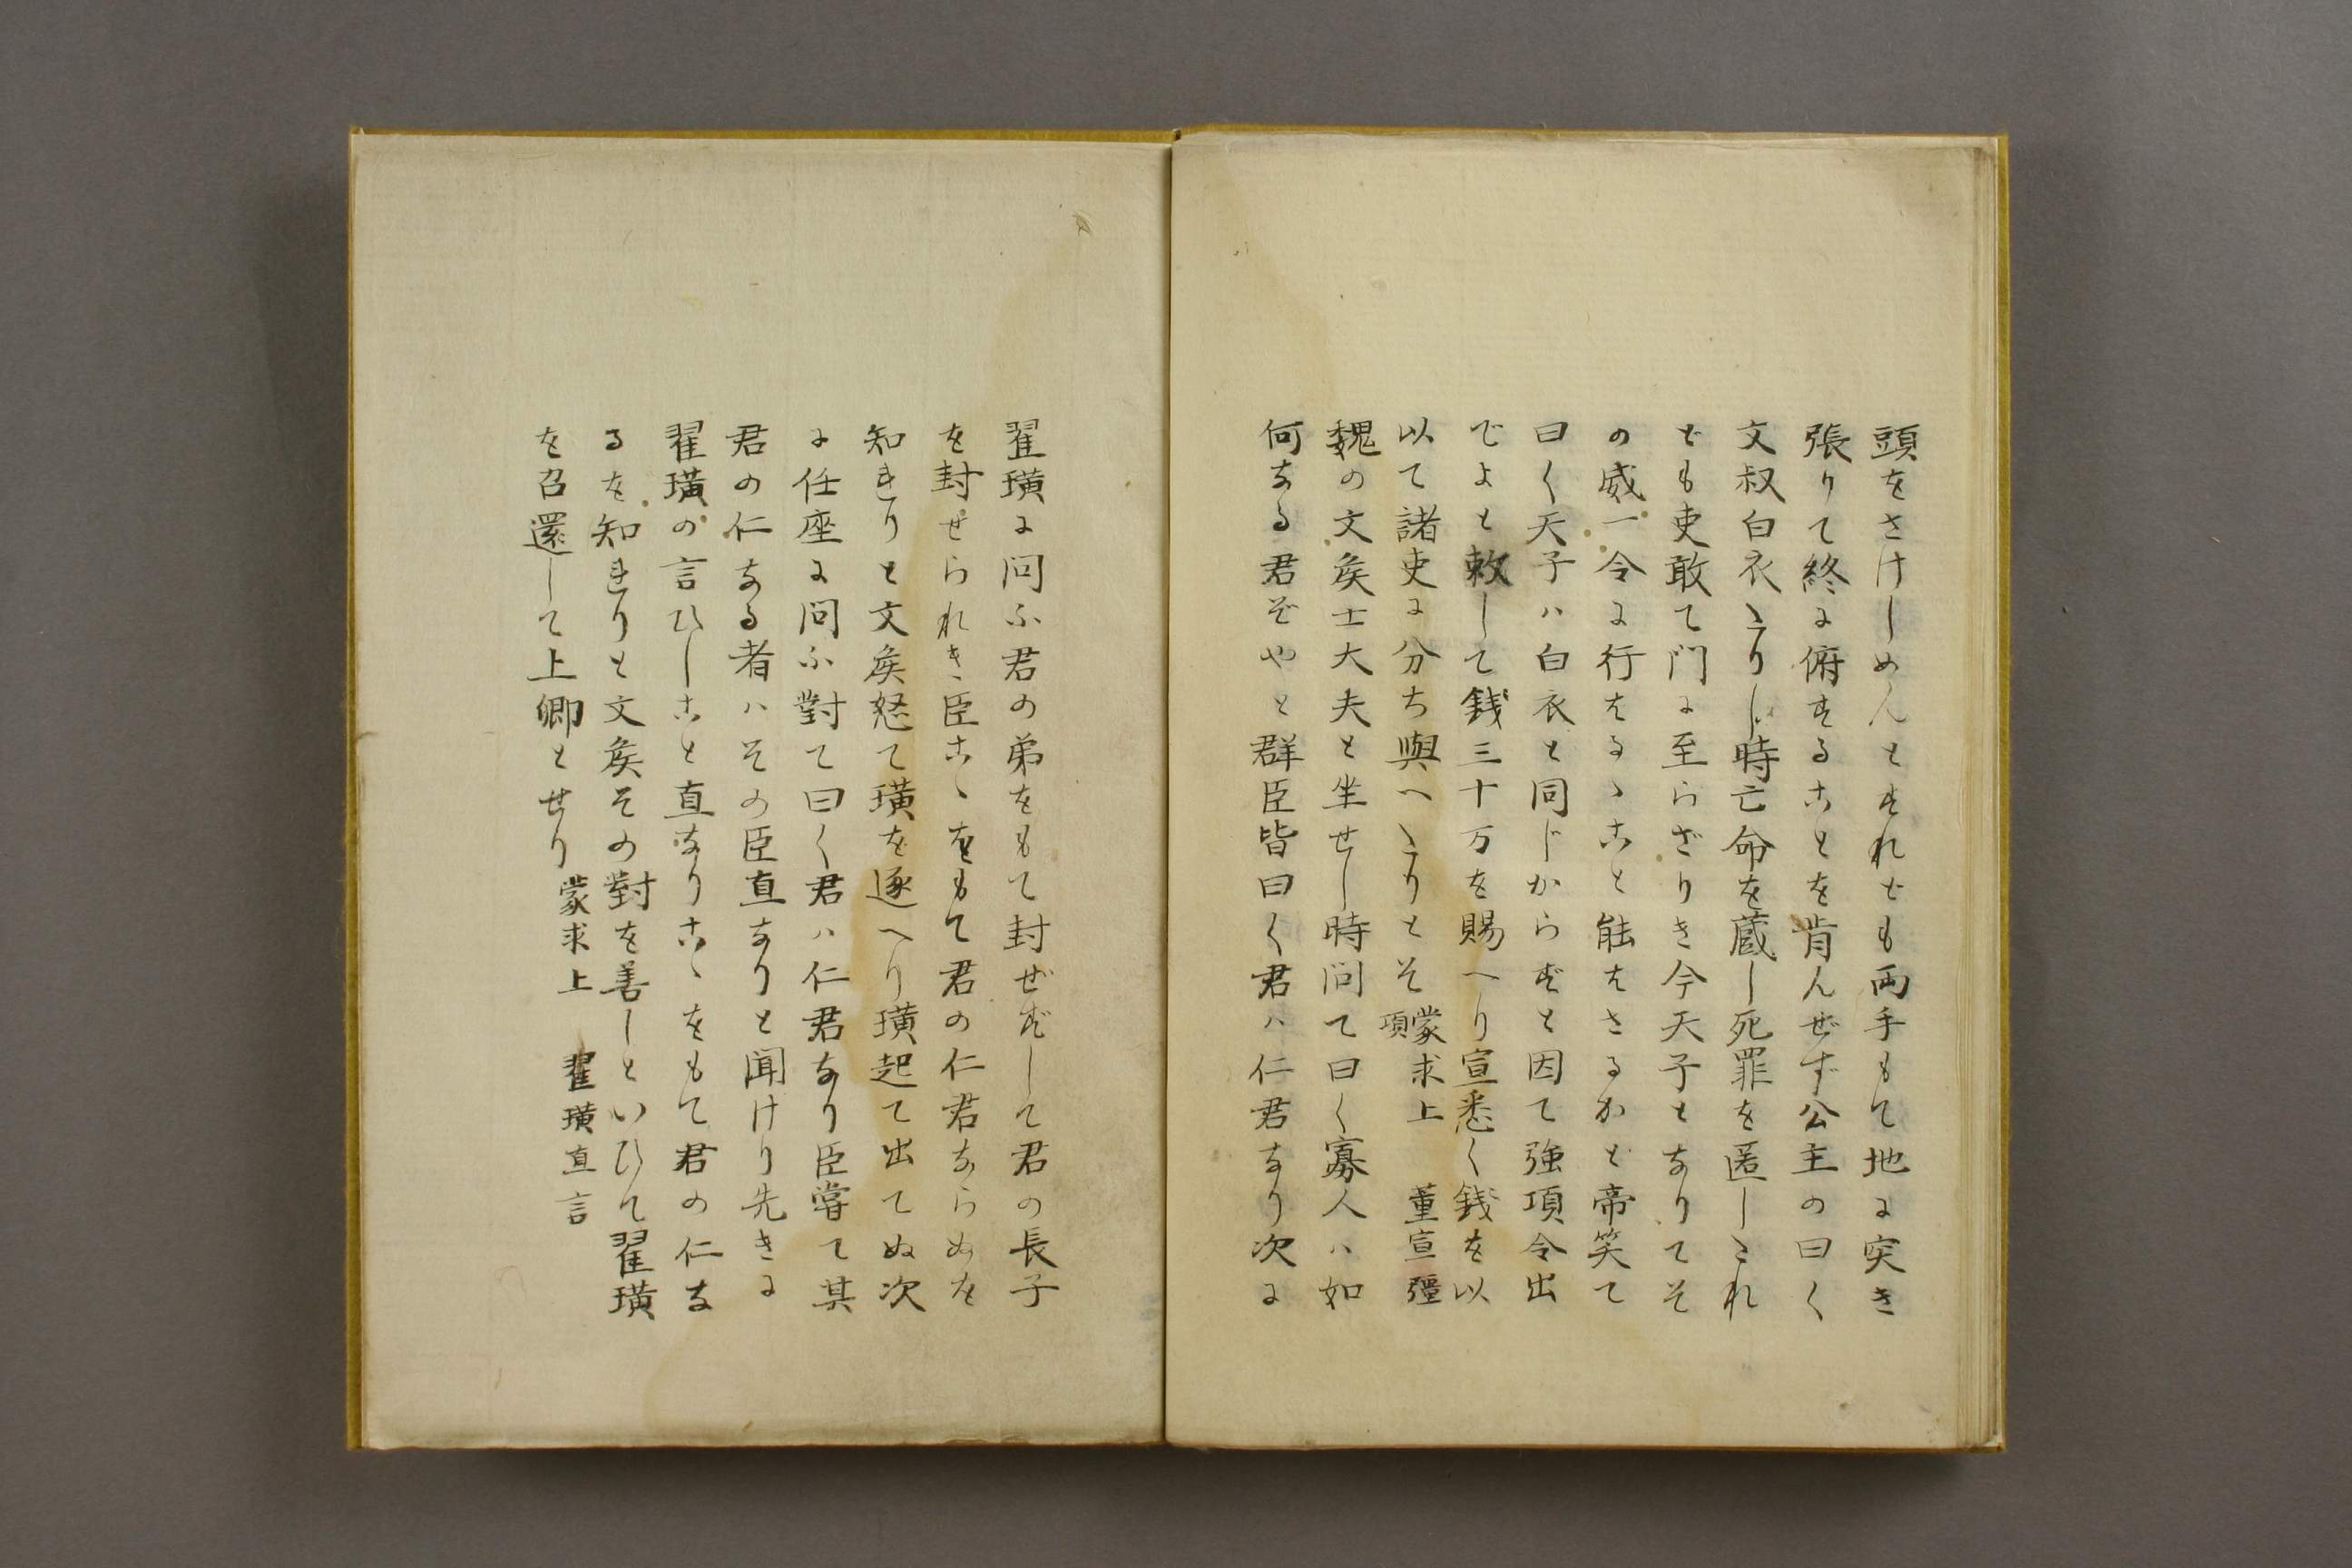 頭をさけしめんとすれども両手もて地に突き
張りて終に俯することを肯んぜず公主の曰く
文叔白衣たりし時亡命を蔵し死罪を匿したれ
ども吏敢て門に至らざりき今天子となりてそ
の威一令に行はるゝこと能はさるかと帝笑て
曰く天子ハ白衣と同じからずと因て強項令出
でよと敕して銭三十万を賜へり宣悉く銭を以
以て諸吏に分ち與へたりとそ 蒙求上 董宣彊項
魏の文矦士大夫と坐せし時問て曰く寡人ハ如
何なる君ぞやと群臣皆曰く君ハ仁君なり次に
翟璜に問ふ君の弟をもて封ぜずして君の長子
を封せられき臣こゝをもて君の仁君ならぬを
知きりと文矦怒て璜を逐へり璜起て出てぬ次
に任座に問ふ對て曰く君ハ仁君なり臣嘗て其
君の仁なる者ハその臣直なりと聞けり先きに
翟璜の言ひしこと直なりこゝをもて君の仁な
るを知きりと文矦その對を善しといひて翟璜
を召還して上卿とせり 蒙求上 翟璜直言